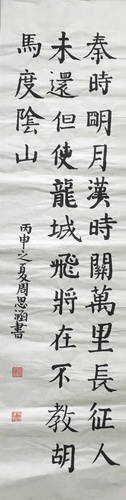 秦時明月漢時關萬里長征人
未還但使龍城飛將在不教胡
馬度陰山
丙申之夏周思涵書